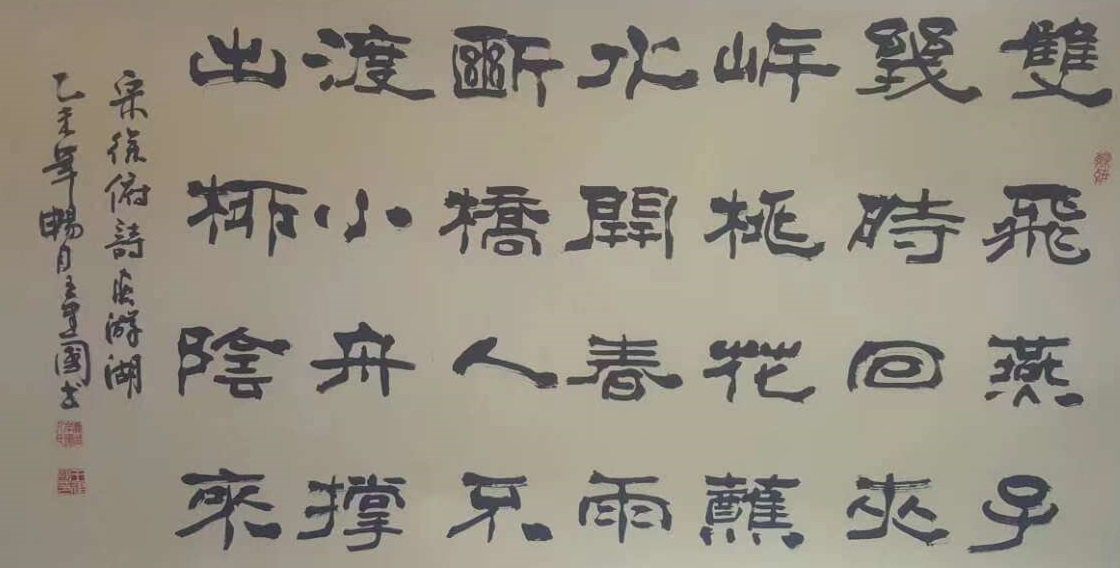 雙飛燕子
幾時回夾
岸桃花蘸
水開春雨
斷橋人不
渡小舟撑
出柳陰來
宋徐俯詩春游湖
乙未年暢月王建國書